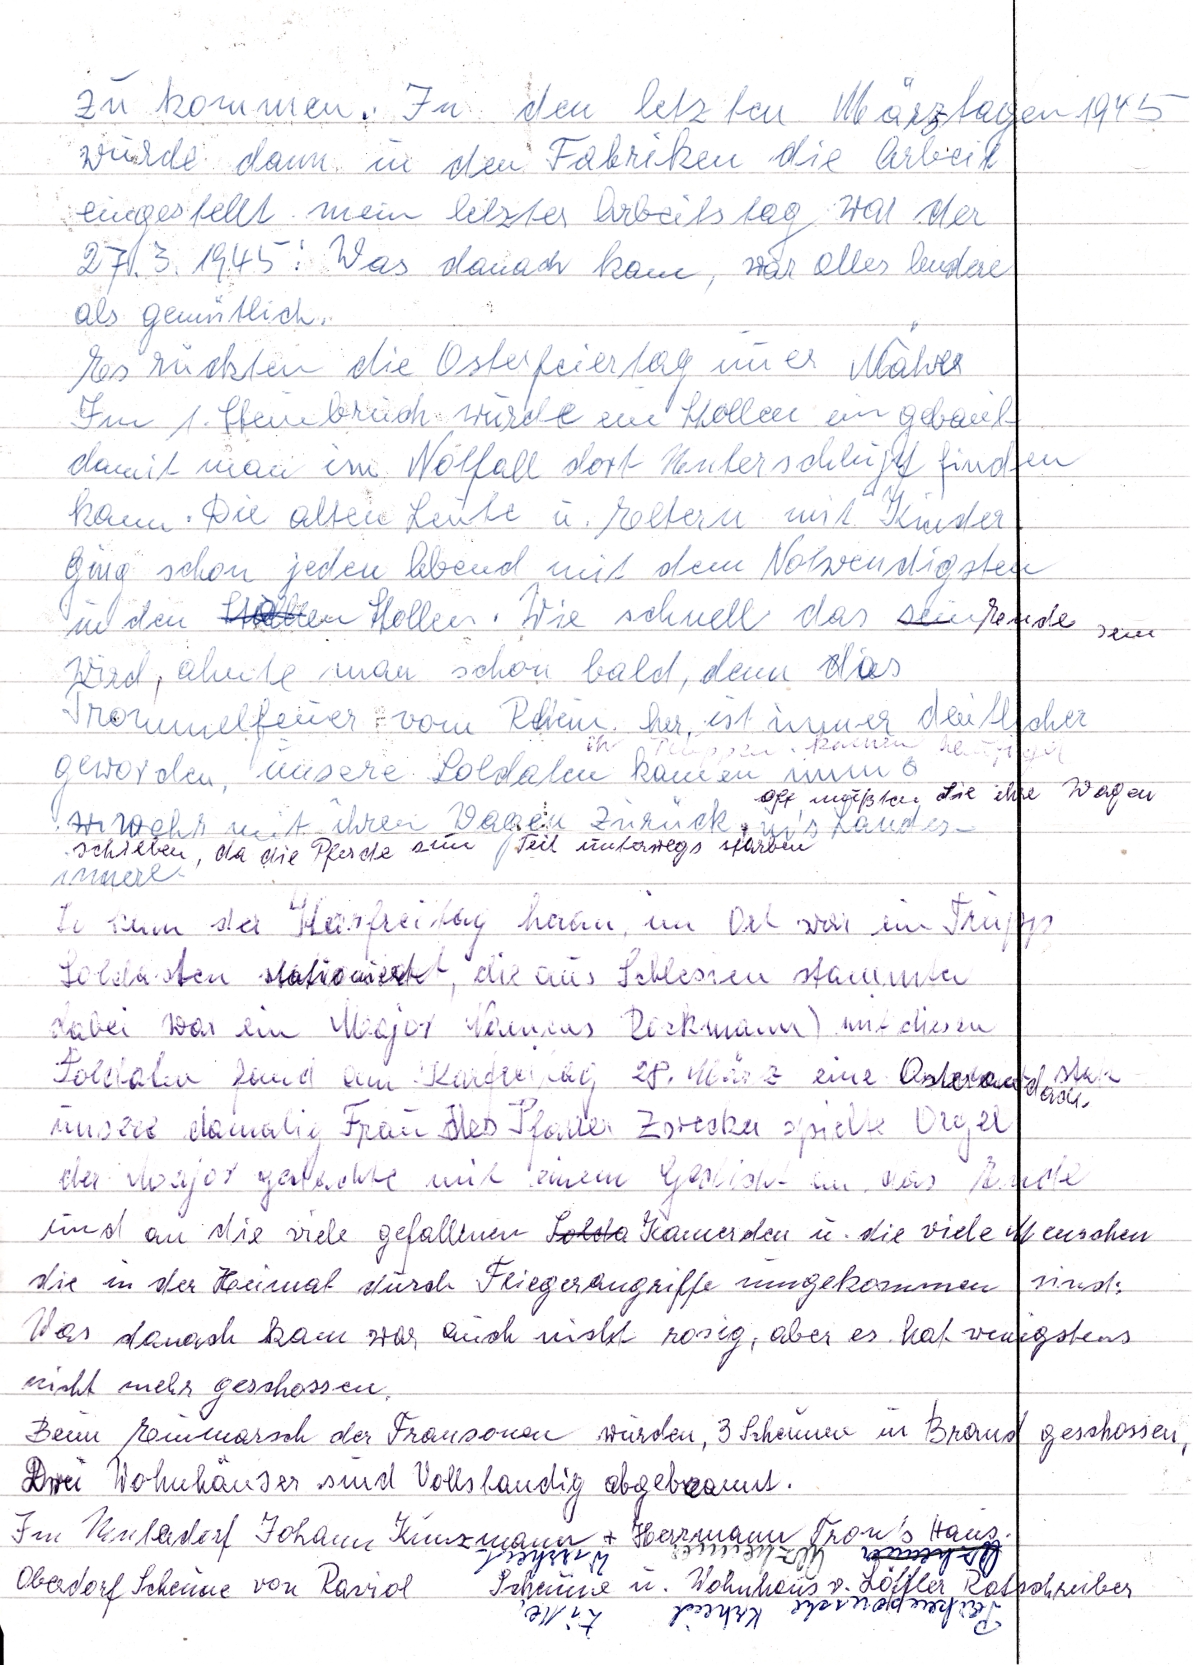 zu kommen. In den letzten Märztagen 1945
wurde dann in den Fabriken die Arbeit
eingestellt mein letzter Arbeitstag war der
27.3.1945! Was danach kam, war alles andere
als gemütlich.
Es rückten die Osterfeiertag immer Näher
Im 1. Steinbruch wurde ein Stollen ein gebaut
damit man im Notfall dort Unterschlupf finden
kann. Die alten Leute u. Eltern mit Kinder
ging schon jeden Abend mit dem Notwendigsten
in den Stollen. Wie schnell das Ende sein
wird, ahnte man schon bald, denn das
Trommelfeuer vom Rhein her, ist immer deutlicher
geworden, unsere Soldaten kamen
mehr mit ihren Wagen zurück, in's Landes-
oft mußten Sie ihre Wagen
schieben, da die Pferde zum Teil unterwegs starben
innere.
der Karfreitag heran, im Ort war ein Trupp
Soldaten stationiert, die aus Schlesien stammten
dabei war ein Major Namens Rockmann) mit diesen
Soldaten fand am Karfreitag 28. März eine Osterandacht statt
unsere damalig Frau des Pfarrer Zwecker spielte Orgel
der Major gedachte mit einem Gedicht an das Ende
und an die viele gefallenen Kamerden u. die viele Menschen
die in der Heimat durch Fliegerangriffe umgekommen sind:
Was danach kam war auch nicht rosig, aber es hat wenigstens
nicht mehr geschossen.
Beim Einmarsch der Fransosen wurden, 3 Scheunen in Brand geschossen,
Drei Wohnhäuser sind Vollständig abgebrannt.
Im Unterdorf Johann Kunzmann + Herrmann Fron's Haus.
Oberdorf Scheune von Raviol Scheune u. Wohnhaus v. Löffler Ratschreiber